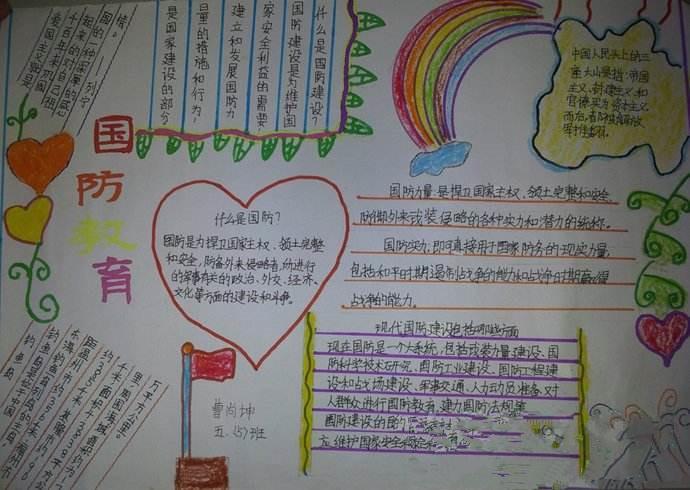 国防教育
什么是国防建设?
国防建设是为维护国
家安全利益的需要,
建立和发展国防力
量的措施和行为,
是国家建设的部分
爱国主义就是
千百年来巩固
起来的对自己祖
国的一种深厚的感
情。——列宁
中国人民头上的三
座大山是指:帝国
主义、封建主义和
官僚买办资本主义
什么是国防?
国防是为捍卫国家主权、领土完整
和安全,防备外来侵略者,所进行
的军事有关的政治、外交、经济、
文化等方面的建设和斗争。
国防力量是捍卫国家主权、领土完整和安全,
防御外来武装侵略的各种实力和潜力的统称。
国防实力:即可直接用于国家防务的现实力量,
包括和平时期遏制战争的能力和战争时期赢得
战争的能力。
现代国防建设包括哪些方面
现在国防是一个大系统,包括武装力量建设、国
防科学技术研究、国防工业建设、国防工程建
设和战场建设、军事交通、人力动员准备、对
人群众进行国防教育、建立国防法规等
国防建设的目的
维护国家安全稳定和
曹尚坤
五.(5)班
钓鱼岛
钓鱼岛位于中国
东海,
距温州市